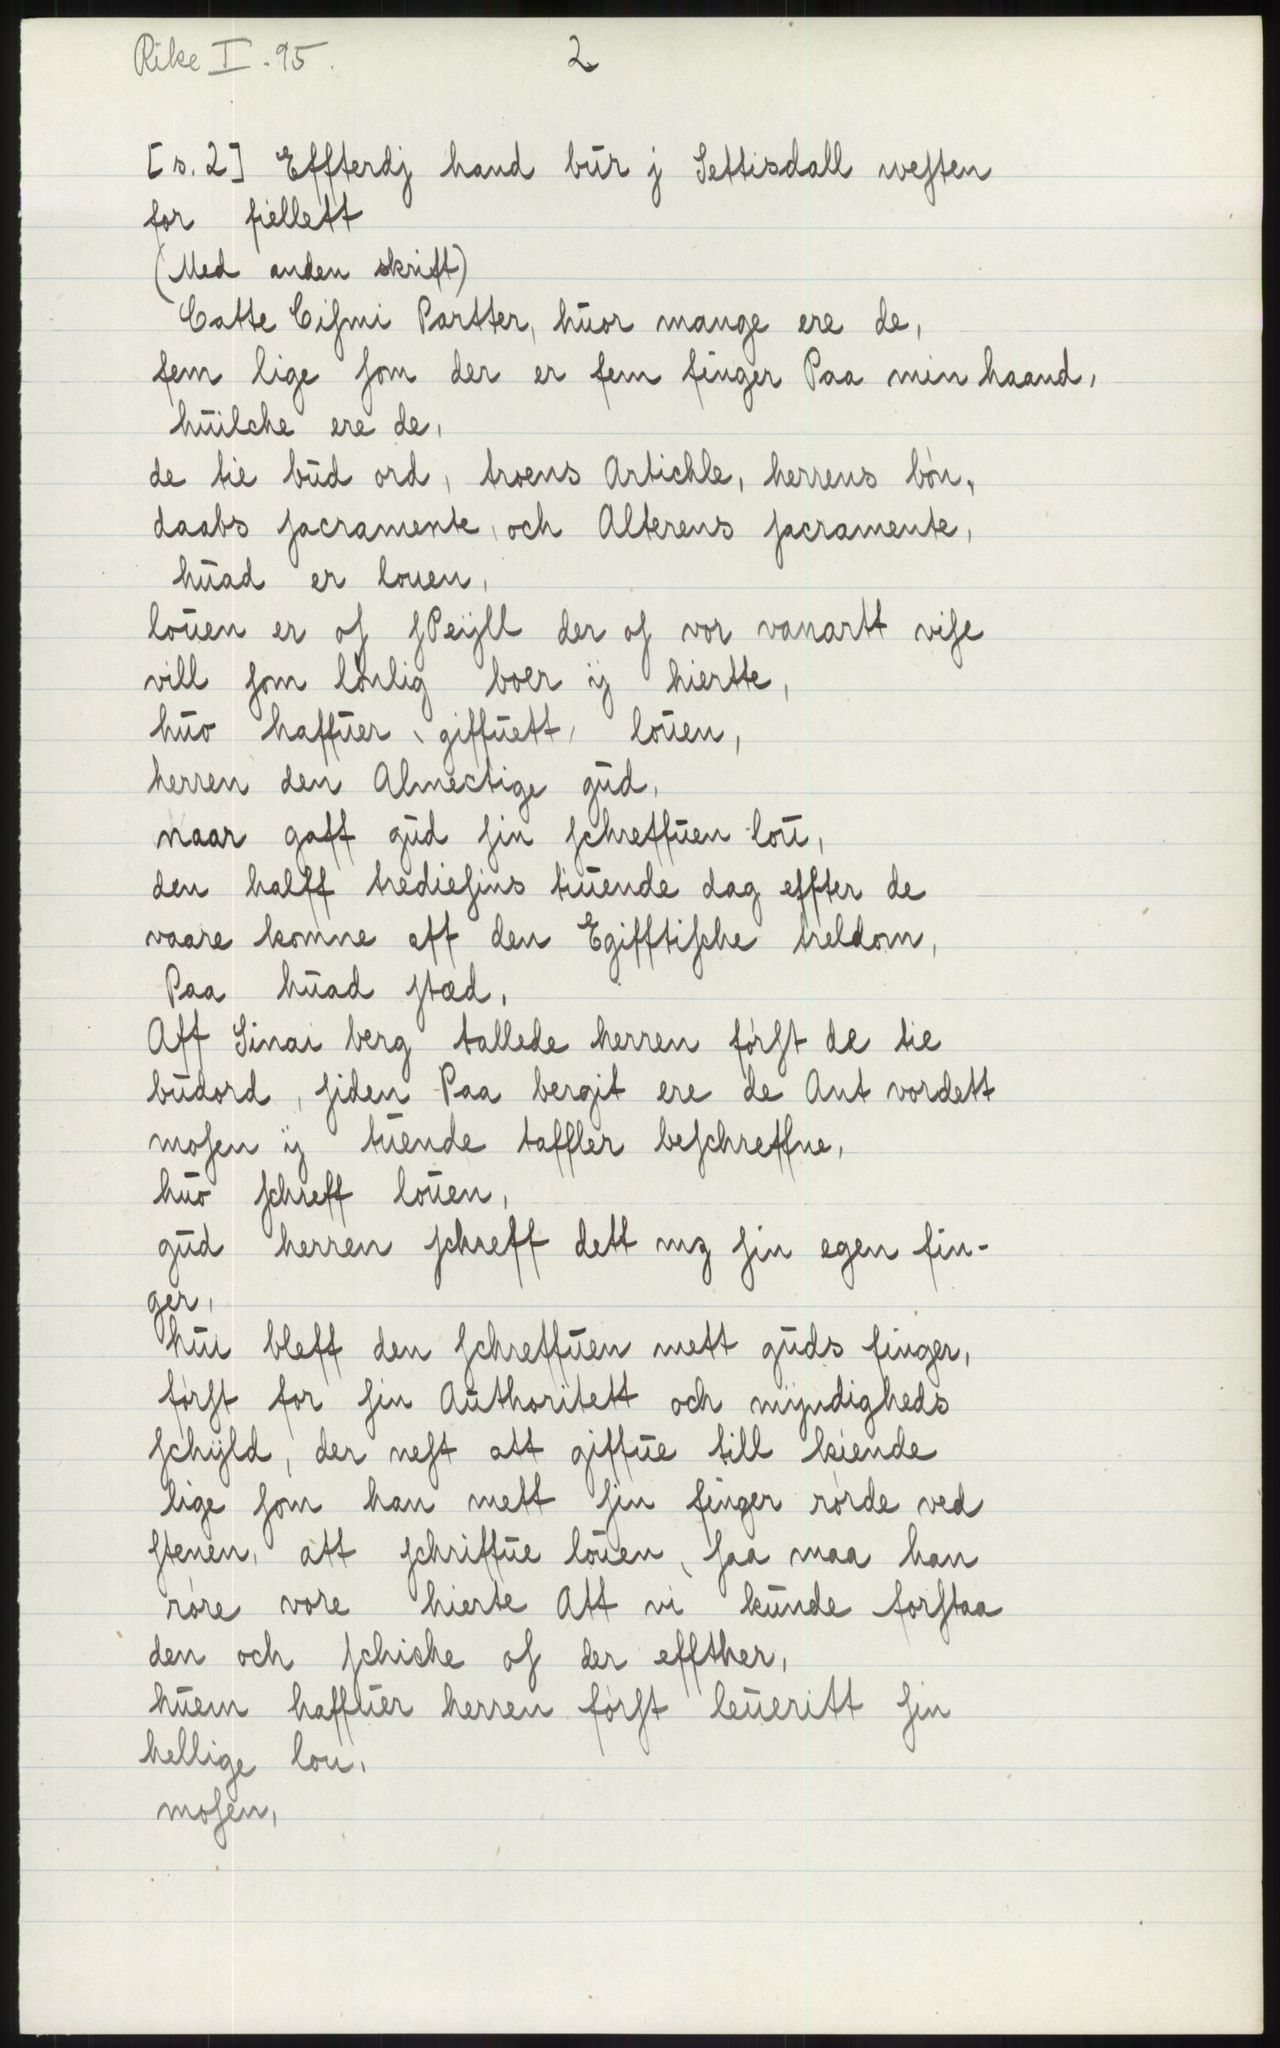 Rike I. 95. 2
[s. 2] Effterdj hand būr j Settisdall weſten
for fiellett
(Med anden skrift)
Catte Ciſmi Partter, hūor mange ere de,
fem lige ſom der er fem finger Paa min haand,
hūilche ere de,
de tie būd ord, troens Artichle, herrens bón,
daabs ſacramente, och Alterens ſacramente,
hūad er louen,
loūen er oſ ſPeÿll der oſ vor vanartt viſe
vill ſom lónlig boer ÿ hiertte,
hūo haffūer giffuett loūen,
herren den Almectige gūd,
naar gaff gūd ſin ſchreffūen loū,
den halff trediesins tiūende dag effter de
vaare komne aff den Egifftiſche treldom,
Paa hūad ſtæd,
Aff Sinai berg tallede herren fórſt de tie
būdord, ſiden Paa bergit ere de Ant vordett
moſen ÿ tūende taffler beſchreffne,
hūo ſchreff loūen,
gūd herren ſchreff dett mz ſin egen fin-
ger,
hūi bleff den ſchreffūen mett gūds finger,
fórſt for ſin Aūthoritett och mÿndigheds
ſchÿld, der neſt att giffūe till kiende
lige ſom han mett ſin finger rórde ved
ſtenen, att ſchriffūe loūen, ſaa maa han
róre vore hierte Att vi kūnde forſtaa
den och ſchicke oſ der effther,
hūem haffūer herren fórſt leūeritt ſin
hellige lou,
moſen,